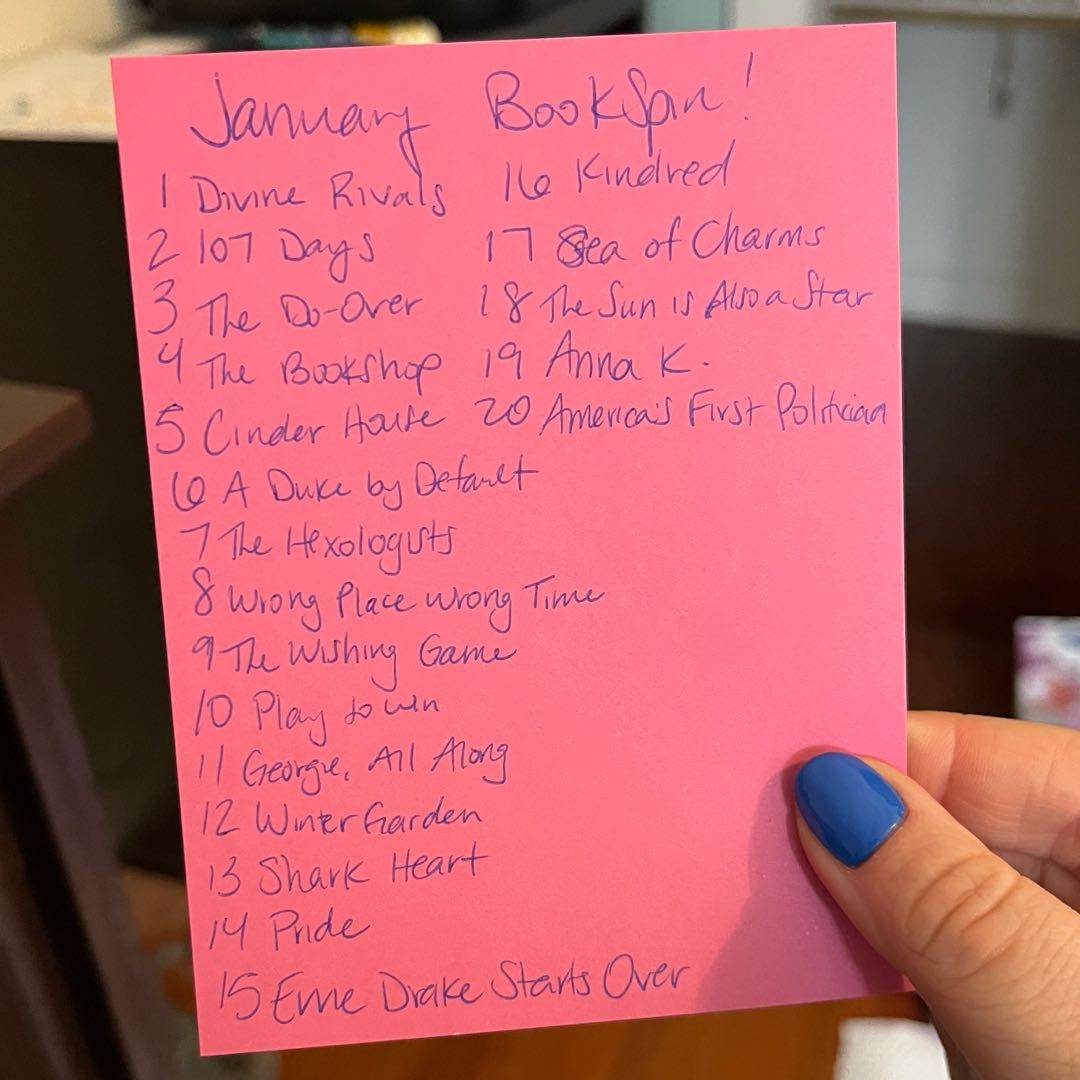 January BookSpin!
1 Divine Rivals
2 107 Days
3 The Do-Over
4 The Bookshop
5 Cinder House
6 A Duke by Default
7 The Hexologists
8 Wrong Place Wrong Time
9 The Wishing Game
10 Play to Win
11 Georgie, All Along
12 Winter Garden
13 Shark Heart
14 Pride
15 Evie Drake Starts Over
16 Kindred
17 Sea of Charms
18 The Sun is Also a Star
19 Anna K.
20 America's First Politician